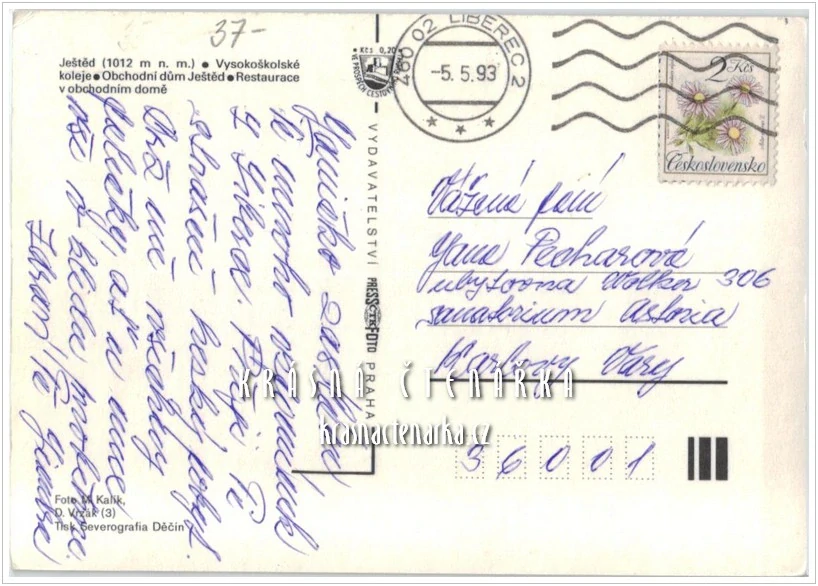 37-
Ještěd (1012 m n. m.) • Vysokoškolské
koleje • Obchodní dům Ještěd • Restaurace
v obchodním domě
Kčs 0,20
460 02 LIBEREC 2
-5.5.93
2 Kčs
Československo
VYDAVATELSTVÍ PRESSFOTO PRAHA
Vážená paní
Jana Pecharová
ubytovna Wolker 306
sanatorium Astoria
Karlovy Vary
36001
zasílám
Ti mnoho vzpomínek
z Liberce. Přeji Ti
hezký pobyt.
Drž mě všechny
palečky, ať u mne
vše
Zdraví Tě
KRÁSNÁ ČTENÁRKA
krasnactenarka.cz
Foto M. Kalík,
D. Vrzák (3)
Tisk Severografia Děčín